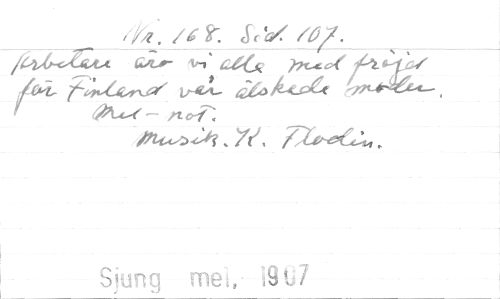 Nr. 168. Sid. 107.
Arbetare äro vi alla med fröjd
för Finland vår älskade moder.
Mel-not.
Musik. K. Flodin.
Sjung mel, 1907